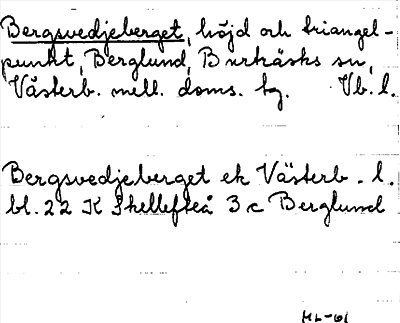 Bergsvedjeberget, höjd och triangel-
punkt, Berglund, Burträsks sn,
Västerb. mell. doms. tg. Vb. l.
Bergsvedjeberget ek Västerb. l.
bl. 22 K Skellefteå 3 c Berglund
ML-61